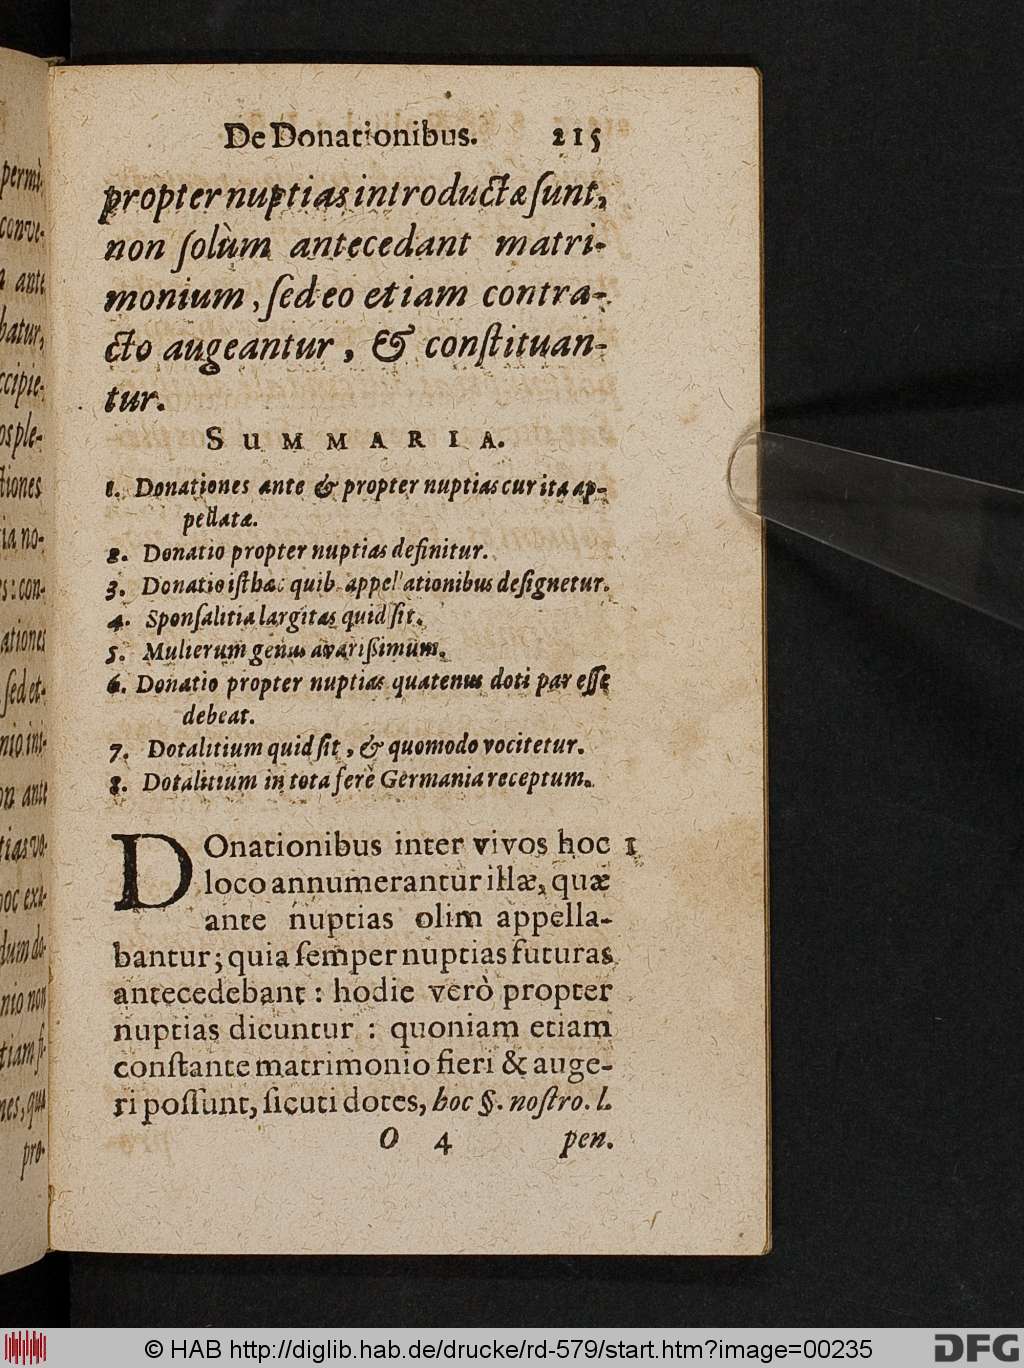 permi-
conve-
ante
batur,
ccipie-
os ple-
tiones
ia no-
s: con-
ationes
sed et-
nio ini-
on ante
tias vo-
hoc exi-
dum do-
nio non
tiam si-
nes, qua
pro-
De Donationibus. 215
propter nuptias introductæ ſunt,
non ſolùm antecedant matri-
monium, ſed eo etiam contra-
cto augeantur, & conſtituan-
tur.
SUMMARIA.
1. Donationes ante & propter nuptias cur ita ap-
pellatæ.
2. Donatio propter nuptias definitur.
3. Donatio iſthæc quib. appellationibus deſignetur.
4. Sponſalitia largitas quid ſit.
5. Mulierum genus avariſſimum.
6. Donatio propter nuptias quatenus doti par eſſe
debeat.
7. Dotalitium quid ſit, & quomodo vocitetur.
8. Dotalitium in tota ferè Germania receptum.
DOnationibus inter vivos hoc 1
loco annumerantur illæ, quæ
ante nuptias olim appella-
bantur; quia ſemper nuptias futuras
antecedebant: hodie verò propter
nuptias dicuntur: quoniam etiam
conſtante matrimonio fieri & auge-
ri poſſunt, ſicuti dotes, hoc §. noſtro. l.
O 4 pen.
© HAB http://diglib.hab.de/drucke/rd-579/start.htm?image=00235
DFG